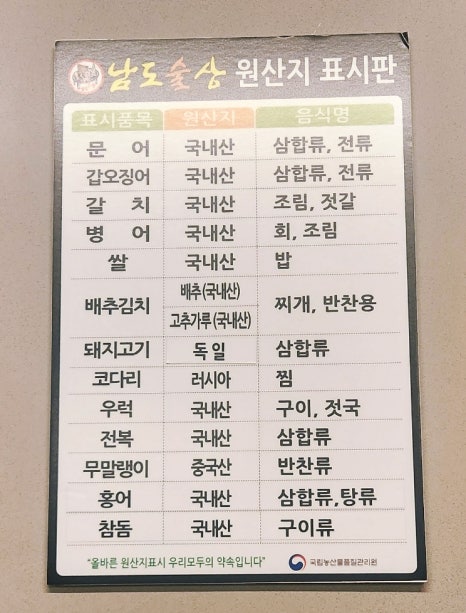 남도술상 원산지 표시판
표시품목 원산지 음식명
문 어 국내산 삼합류, 전류
갑오징어 국내산 삼합류, 전류
갈 치 국내산 조림, 젓갈
병 어 국내산 회, 조림
쌀 국내산 밥
배추김치 배추(국내산) 찌개, 반찬용
고추가루(국내산)
돼지고기 독일 삼합류
코다리 러시아 찜
우럭 국내산 구이, 젓국
전복 국내산 삼합류
무말랭이 중국산 반찬류
홍어 국내산 삼합류,탕류
참돔 국내산 구이류
"올바른 원산지표시 우리모두의 약속입니다" 국립농산물품질관리원